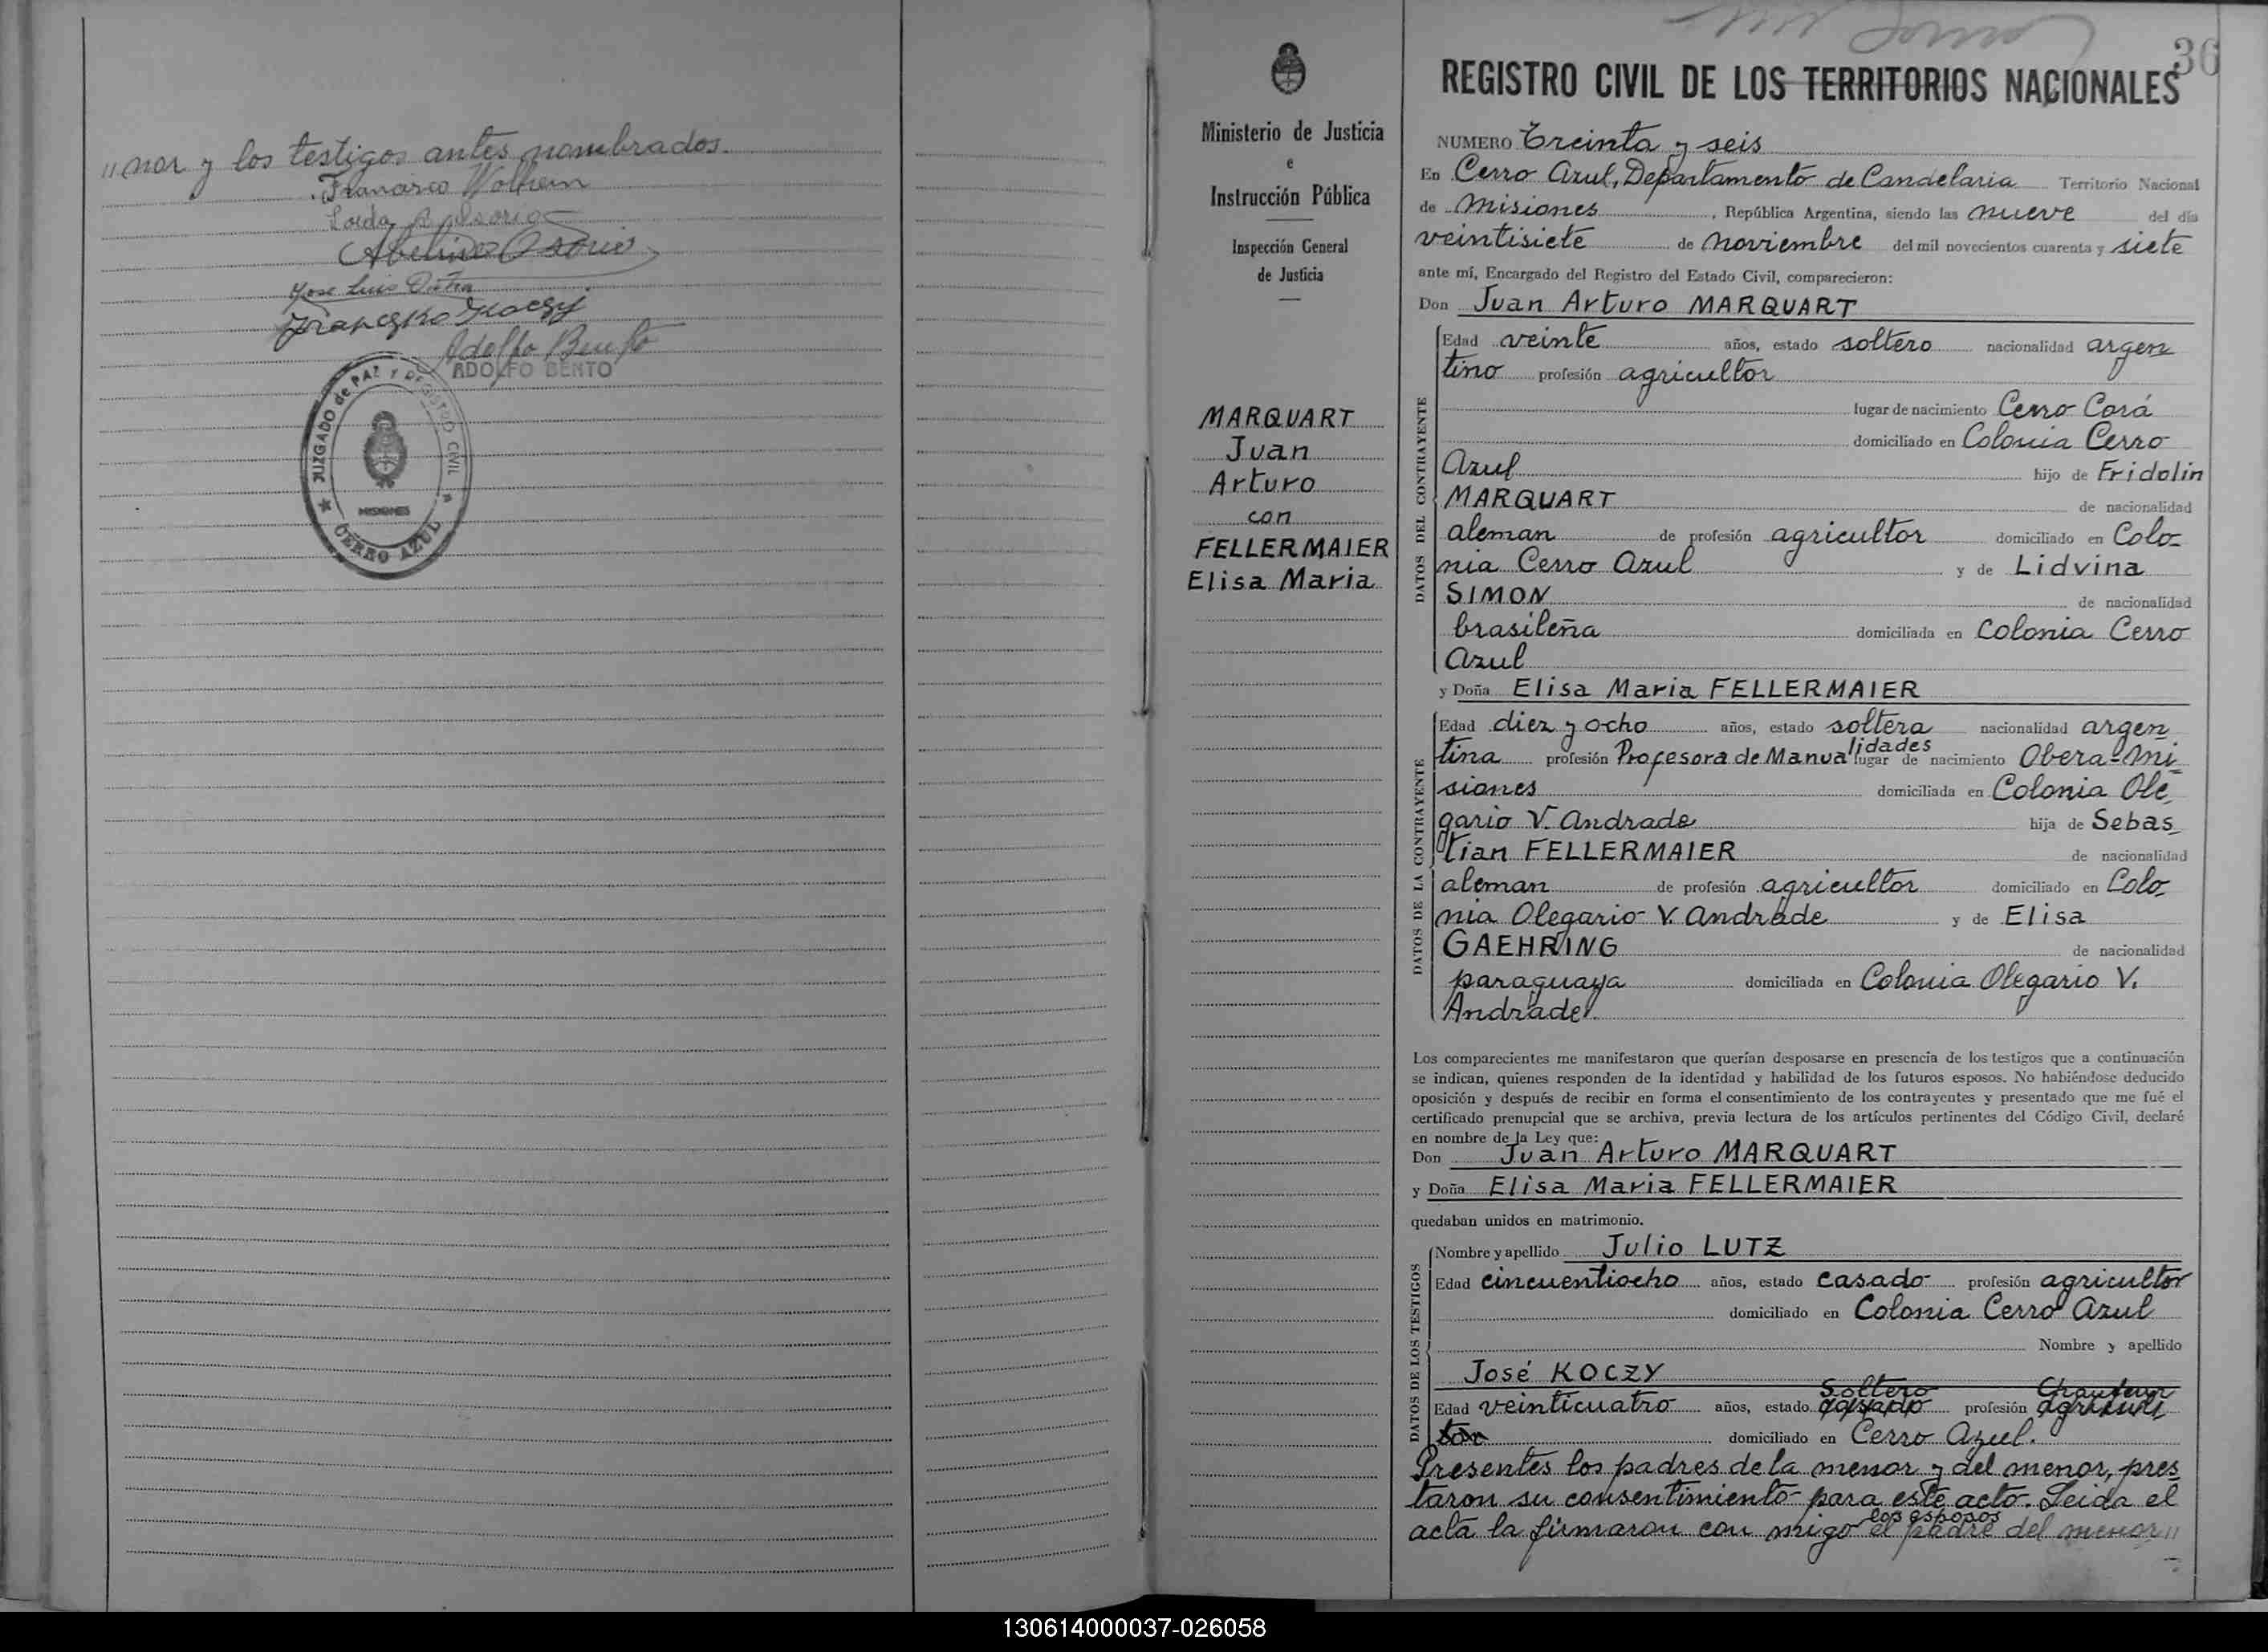 "nor y los testigos antes nombrados.
Francisco
Abelino Osorio
Jose Luis
Franczko Koczy
Adolfo Bento
ADOLFO BENTO
JUZGADO de PAZ Y REGISTRO CIVIL
MISIONES
CERRO AZUL
Ministerio de Justicia
e
Instrucción Pública
Inspección General
de Justicia
MARQUART
Juan
Arturo
con
FELLERMAIER
Elisa Maria
36
REGISTRO CIVIL DE LOS TERRITORIOS NACIONALES
NUMERO Treinta y seis
En Cerro Azul, Departamento de Candelaria Territorio Nacional
de Misiones, República Argentina, siendo las nueve del día
veintisiete de noviembre del mil novecientos cuarenta y siete
ante mí, Encargado del Registro del Estado Civil, comparecieron:
Don Juan Arturo MARQUART
DATOS DEL CONTRAYENTE
Edad veinte años, estado soltero nacionalidad argen
tino profesión agricultor
lugar de nacimiento Cerro Corá
domiciliado en Colonia Cerro
Azul hijo de Fridolin
MARQUART de nacionalidad
aleman de profesión agricultor domiciliado en Colo-
nia Cerro Azul y de Lidvina
SIMON de nacionalidad
brasileña domiciliada en Colonia Cerro
Azul
y Doña Elisa Maria FELLERMAIER
DATOS DE LA CONTRAYENTE
Edad diez y ocho años, estado soltera nacionalidad argen
tina profesión Profesora de Manualidades lugar de nacimiento Obera-Mi
siones domiciliada en Colonia Ole
gario V. Andrade hija de Sebas
tian FELLERMAIER de nacionalidad
aleman de profesión agricultor domiciliado en Colo
nia Olegario V. Andrade y de Elisa
GAEHRING de nacionalidad
paraguaya domiciliada en Colonia Olegario V.
Andrade.
Los comparecientes me manifestaron que querían desposarse en presencia de los testigos que a continuación
se indican, quienes responden de la identidad y habilidad de los futuros esposos. No habiéndose deducido
oposición y después de recibir en forma el consentimiento de los contrayentes y presentado que me fué el
certificado prenupcial que se archiva, previa lectura de los artículos pertinentes del Código Civil, declaré
en nombre de la Ley que:
Don Juan Arturo MARQUART
y Doña Elisa Maria FELLERMAIER
quedaban unidos en matrimonio.
DATOS DE LOS TESTIGOS
Nombre y apellido Julio LUTZ
Edad cincuentiocho años, estado casado profesión agricultor
domiciliado en Colonia Cerro Azul
Nombre y apellido
José KOCZY
Soltero Chaufeur
Edad veinticuatro años, estado casado profesión agricul
tor domiciliado en Cerro Azul.
Presentes los padres de la menor y del menor, pres
taron su consentimiento para este acto. Leida el
los esposos
acta la firmaron con migo el padre del menor"
130614000037-026058